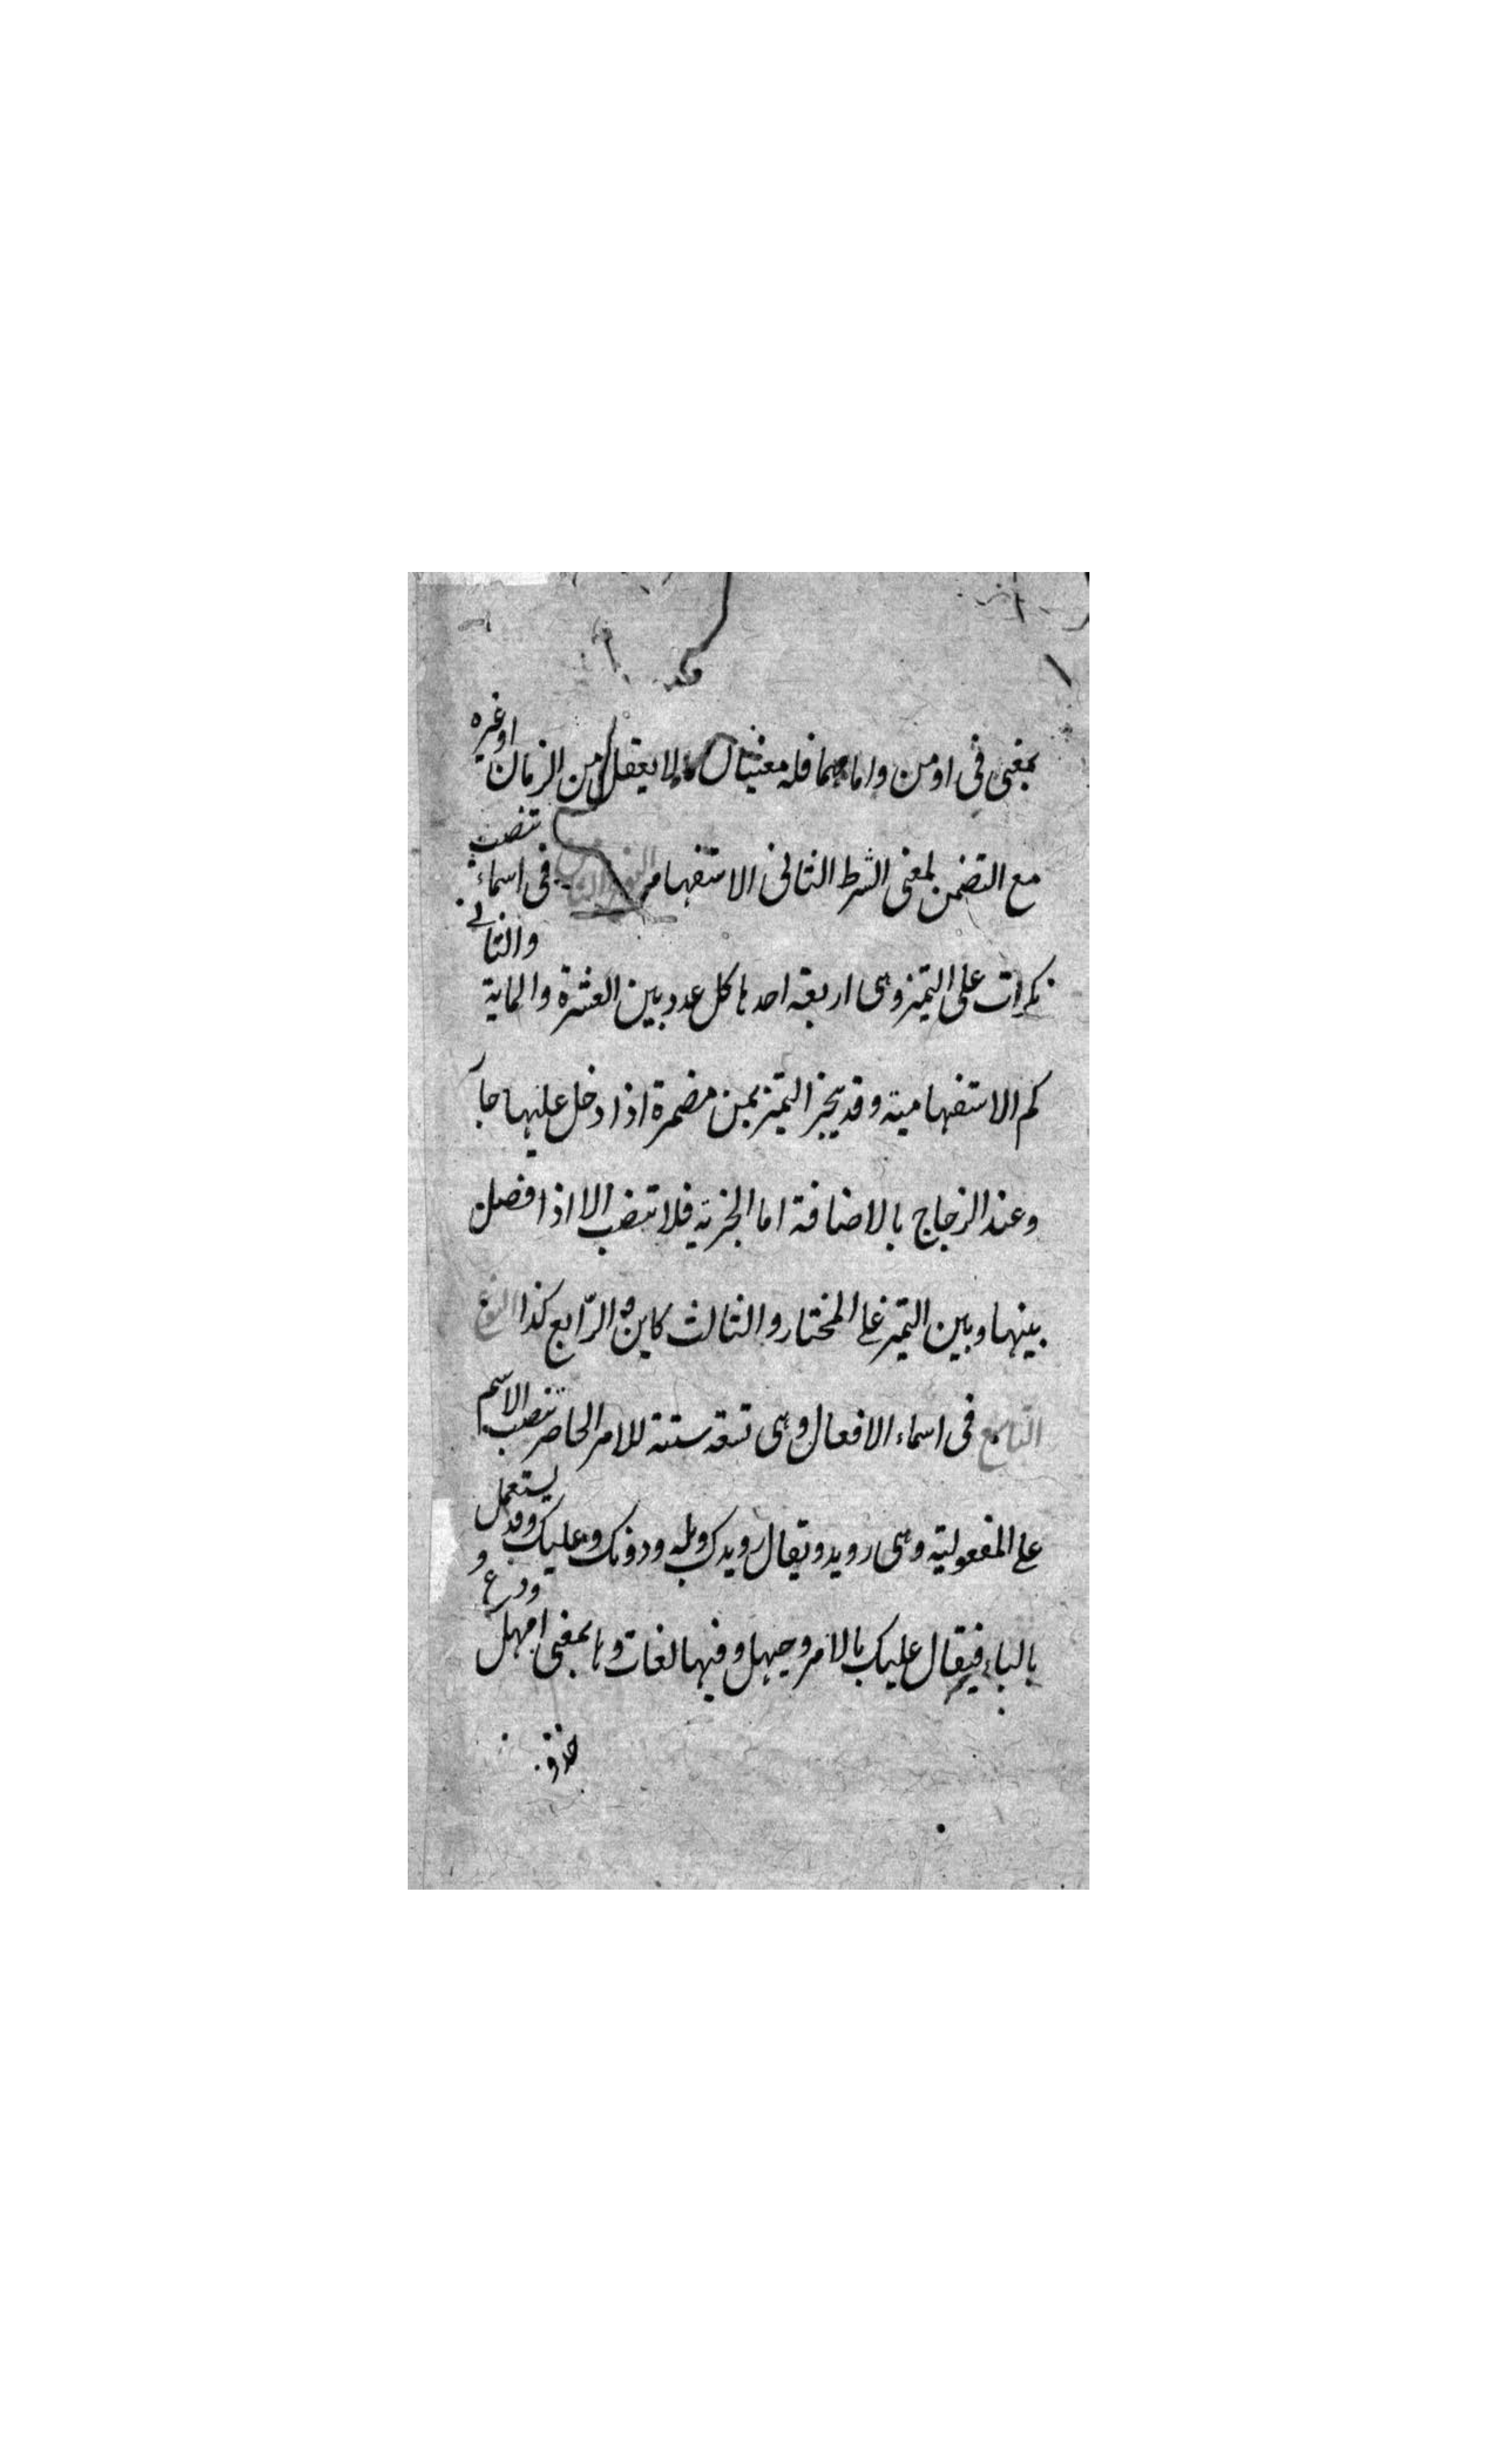 بمعنى فى او من واما مهما فله معنيان لا يعقل من الزمان او غيره
مع التضمن لمعنى الشرط الثانى الاستفهام النوع الثامن فى اسماء تنصب
نكرات على التميز وهى اربعة احدها كل عدد بين العشرة والماية والثانى
كم الاستفهامية وقد يجر التميز بمن مضمرة اذا دخل عليها جار
وعند الزجاج بالاضافة اما الخبرية فلا تنصب الا اذا فصل
بينها وبين التميز على المختار والثالث كاين والرّابع كذا النوع
التاسع فى اسماء الافعال وهى تسعة ستة للامر الحاضر تنصب الاسم
على المفعولية وهى رويد ويقال رويدك وبله ودونك وعليك وقد يستعمل
بالباء فيقال عليك بالامر وحيهل وفيها لغات وها بمعنى امهل ودع و
خذ و